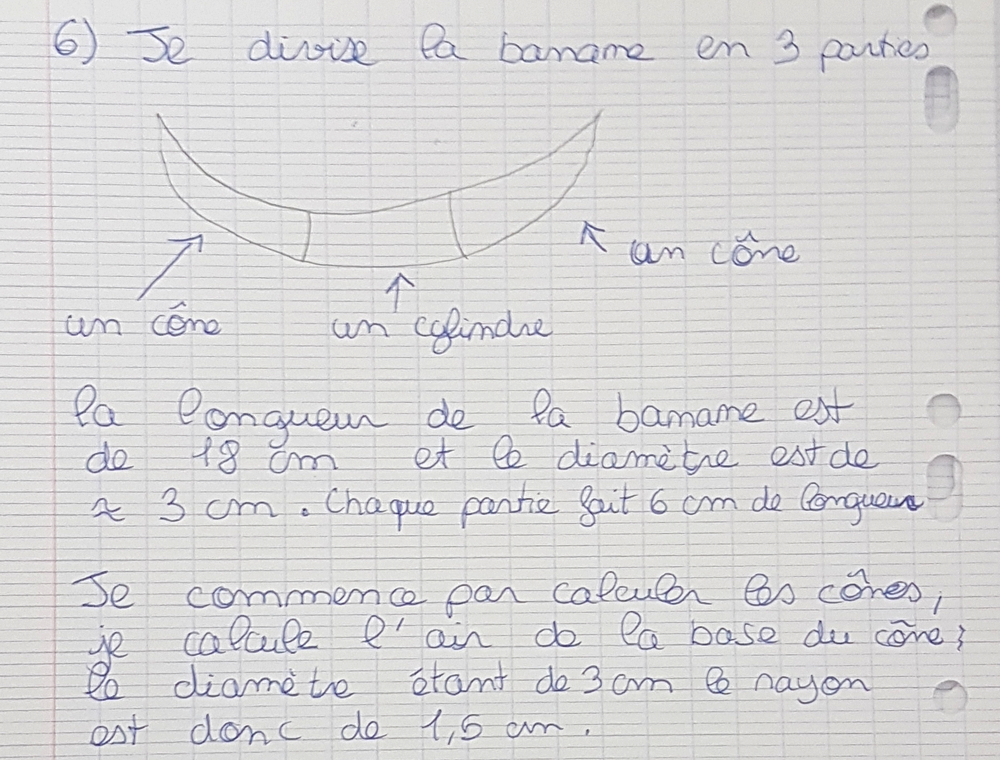 6) Je divise la banane en 3 parties
un cône
un cône
un cylindre
la longueur de la banane est
de 18 cm et le diamètre est de
≈ 3 cm. Chaque partie fait 6 cm de longueur
Je commence par calculer les cônes,
je calcule l'air de la base du cône ;
le diamètre étant de 3 cm le rayon
est donc de 1,5 cm.